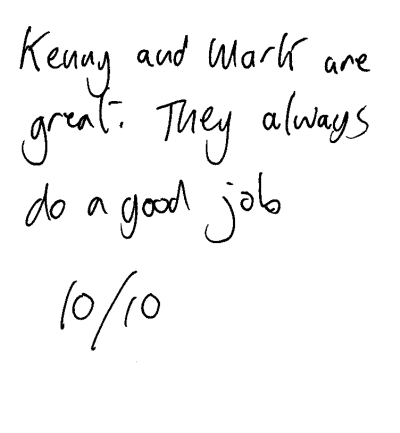 Kenny and Mark are
great. They always
do a good job
10/10